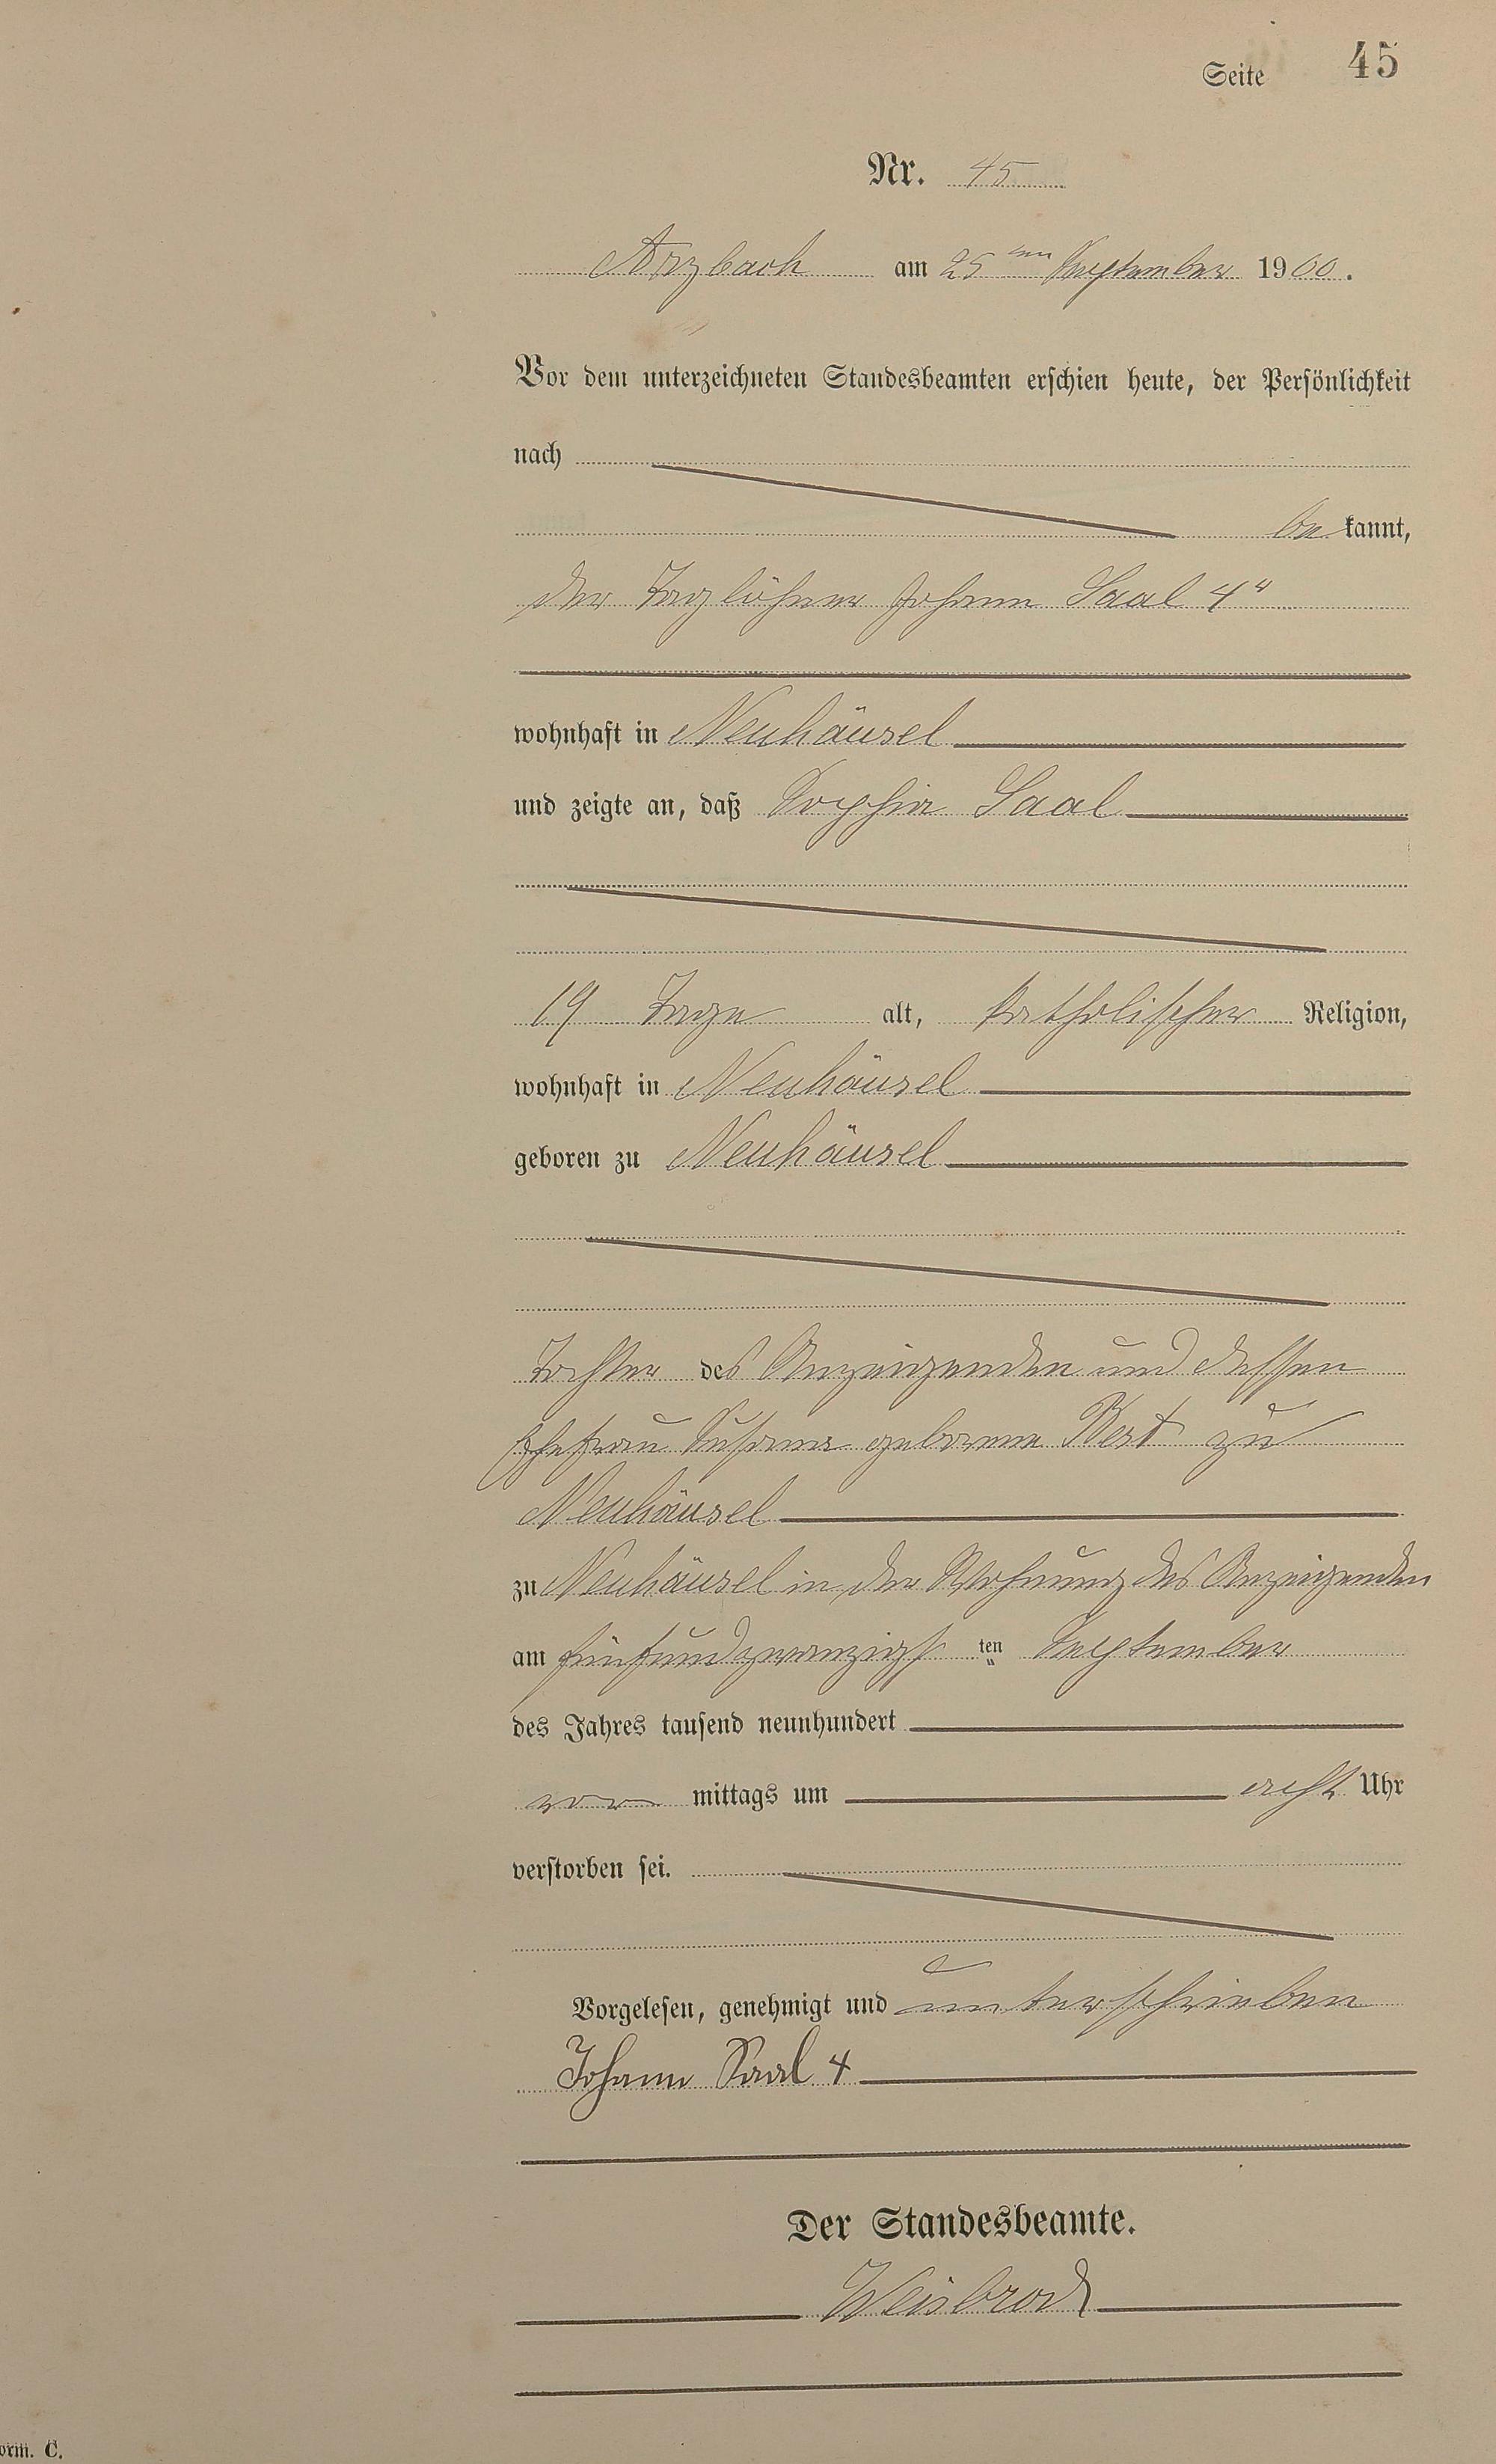 Seite 45
Nr. 45
Arzbach am 25ten September 1900.
Vor dem unterzeichneten Standesbeamten erschien heute, der Persönlichkeit
nach
bekannt,
der Taglöhner Johann Saal 4r
wohnhaft in Neuhäusel
und zeigte an, daß Sophia Saal
19 Tage alt, katholischer Religion,
wohnhaft in Neuhäusel
geboren zu Neuhäusel
Tochter des Anzeigenden und dessen
Ehefrau Susanna geborene zu
Neuhäusel
zu Neuhäusel in der Wohnung des Anzeigenden
am fünfundzwanzigsten September
des Jahres tausend neunhundert
vor mittags um acht Uhr
verstorben sei.
Vorgelesen, genehmigt und unterschrieben
Johann Saal 4
Der Standesbeamte.
Weisbrod
orm. C.